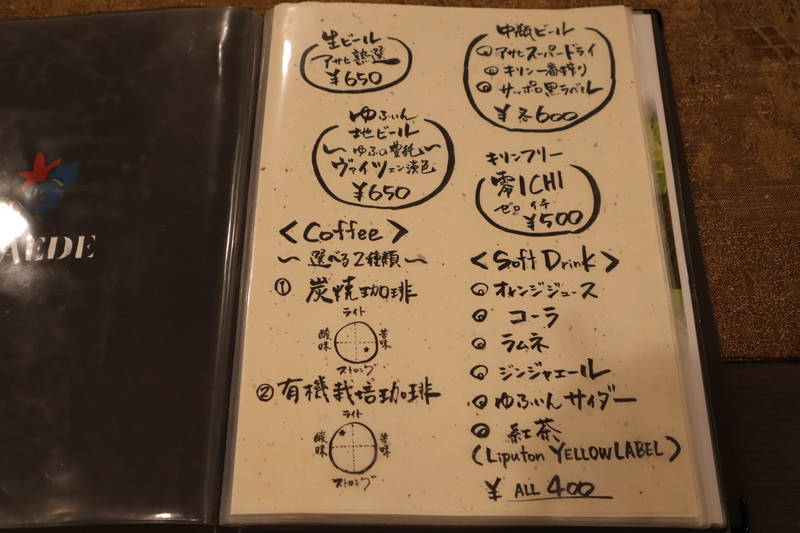 AEDE
生ビール
アサヒ熟選
¥650
ゆふいん
地ビール
〜ゆふの豊耗〜
ヴァイツェン淡色
¥650
<Coffee>
〜選べる2種類〜
① 炭焼珈琲
ライト
酸味
苦味
ストロング
② 有機栽培珈琲
ライト
酸味
苦味
ストロング
中瓶ビール
アサヒスーパードライ
キリン一番搾り
サッポロ黒ラベル
¥各600
キリンフリー
零ICHI
ゼロ イチ
¥500
<Soft Drink>
オレンジジュース
コーラ
ラムネ
ジンジャエール
ゆふいんサイダー
紅茶
(Liputon YELLOW LABEL)
¥ ALL 400